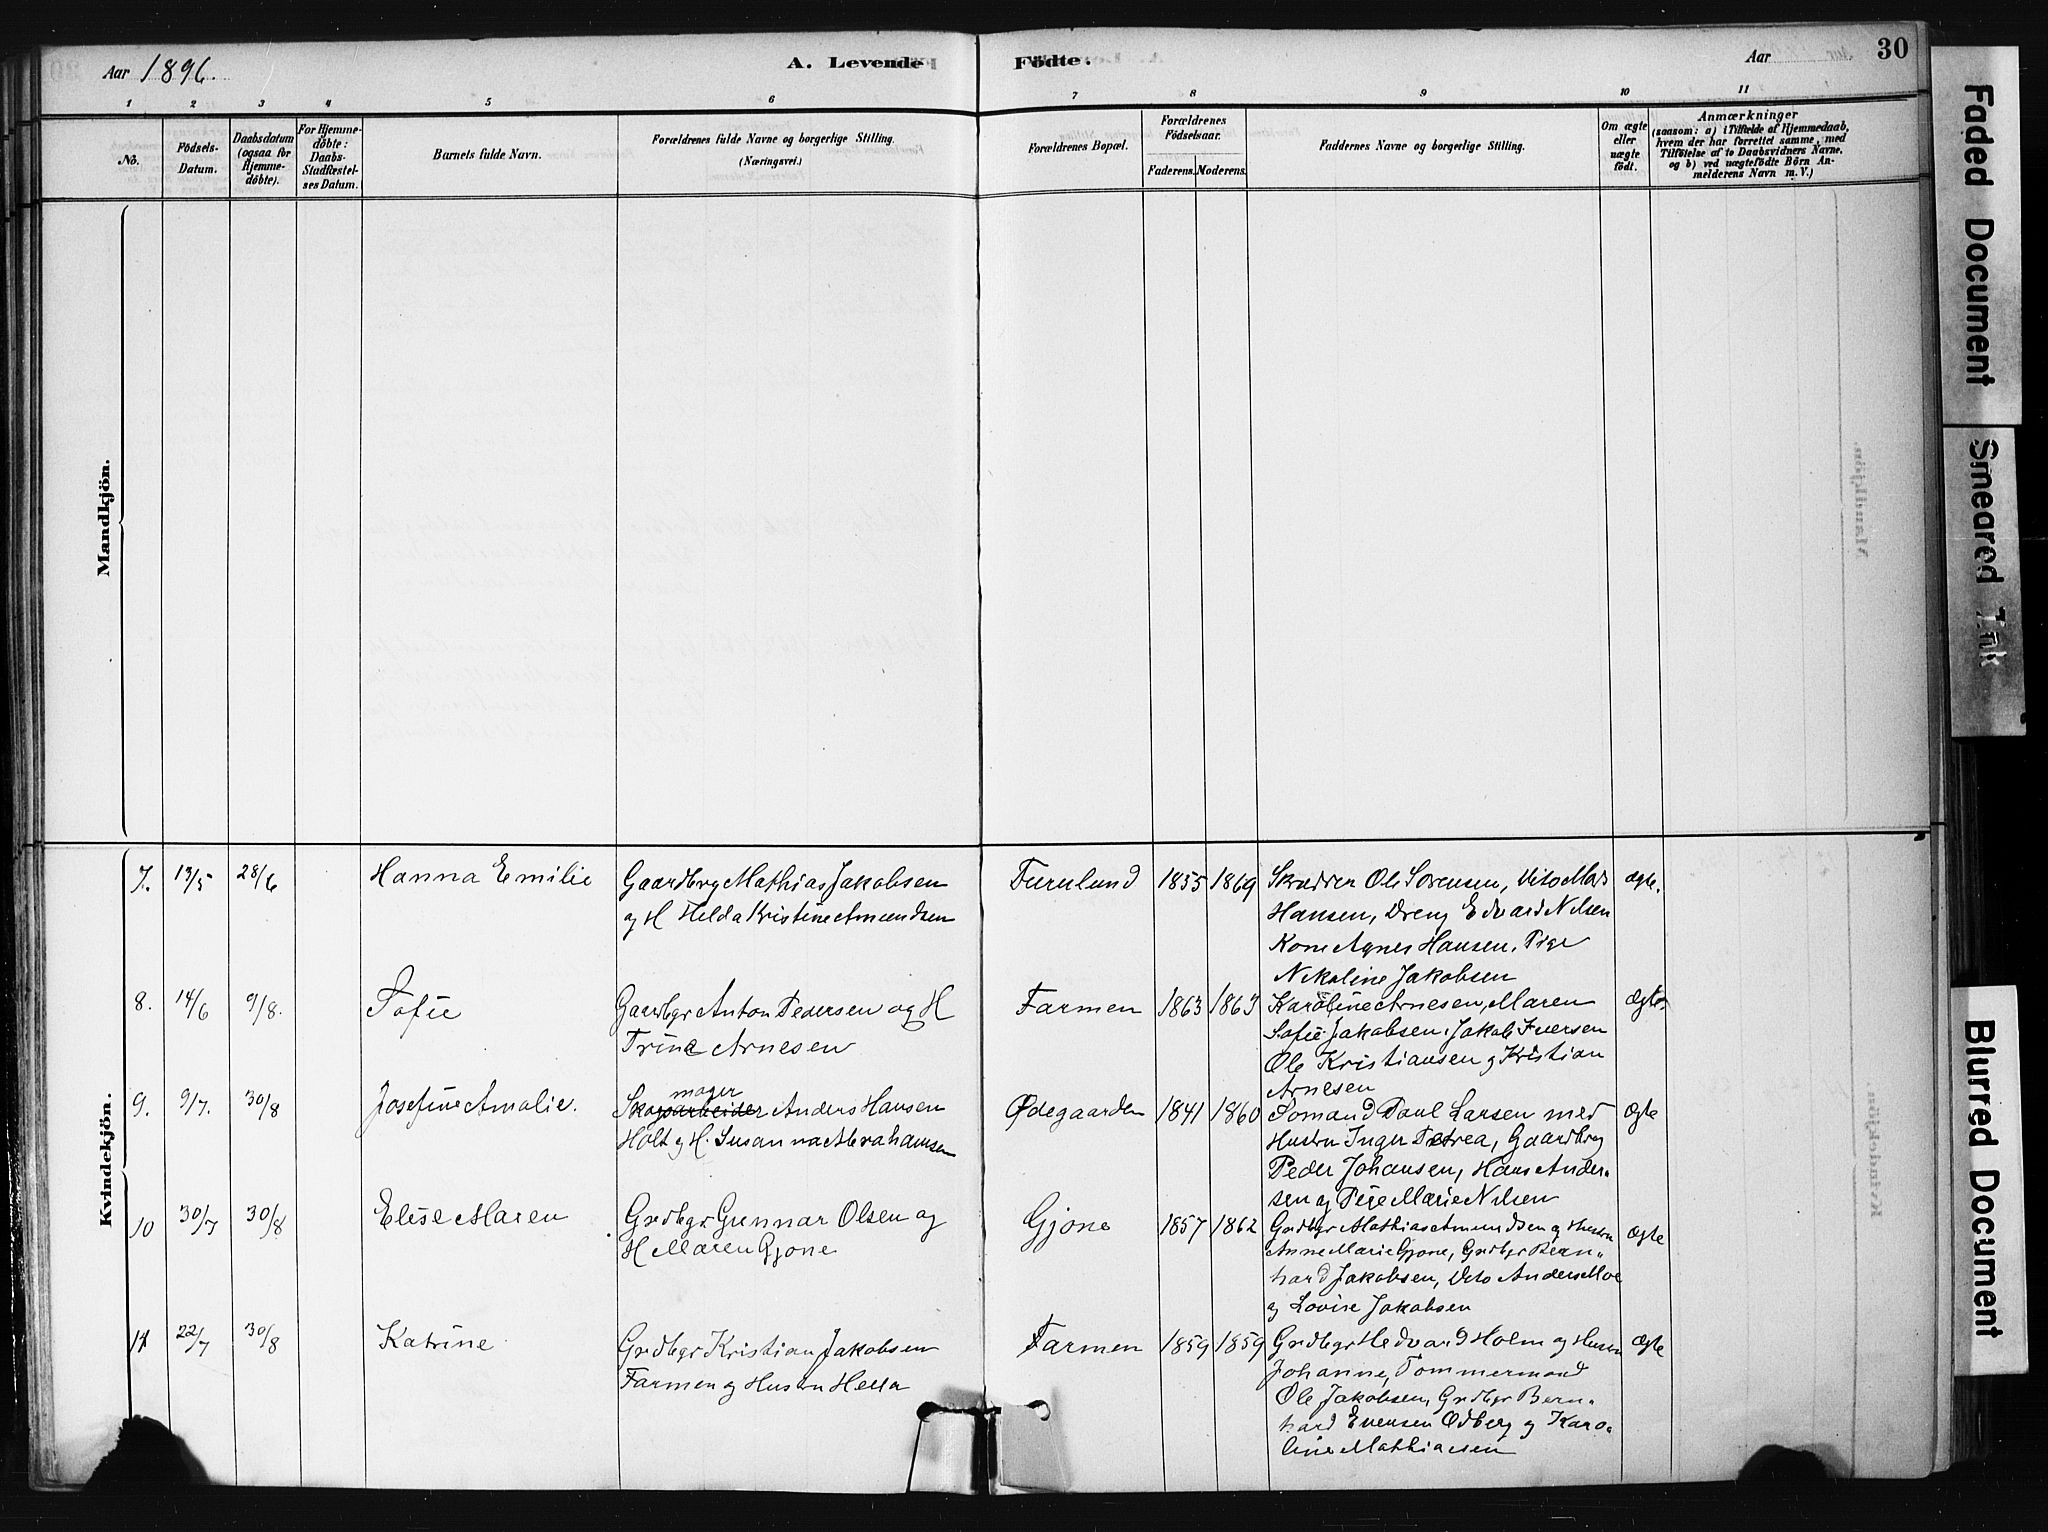 Aar 1896.
A. Levende Födte.
Aar
30
1 2 3 4 5 6 7 8 9 10 11
No.
Födsels-Datum.
Daabsdatum (ogsaa for Hjemme-döbte).
For Hjemme-döbte: Daabs-Stadfæstel-ses Datum.
Barnets fulde Navn.
Forældrenes fulde Navne og borgerlige Stilling.
(Næringsvei.)
Forældrenes Bopæl.
Forældrenes Födselsaar.
Faderens. Moderens.
Faddernes Navne og borgerlige Stilling.
Om ægte eller uægte födt.
Anmærkninger
(saasom: a) i Tilfælde af Hjemmedaab,
hvem der har forrettet samme, med
Tilföielse af to Daabsvidners Navne,
og b) ved uægtefödte Börn An-
melderens Navn m. V.)
Mandkjön.
Kvindekjön.
7. 13/5 28/6 Hanna Emilie
Gaardbrg Mathias Jakobsen
og H Helda Kristine Amundsen
Furulund 1855 1869
Skrædder Ole Sörensen, Dito Mads
Hansen, Dreng Edvard Nilsen
Kone Agnes Hansen, Pige
Nikoline Jakobsen
ægte.
8. 14/6 9/8. Sofie
Gaardbgr Anton Pedersen og H
Trine Arnesen
Farmen 1863 1863
Karoline Arnesen, Maren
Sofie Jakobsen, Jakob Iversen
Ole Kristiansen og Kristian
Arnesen
Ægte.
9. 9/7. 30/8 Josefine Amalie.
mager
Skogsarbeider Anders Hansen
Holt og H. Susanna Abrahamsen
Ødegaarden 1841 1860
Somand Paul Larsen med
Hustru Inger Petrea, Gaardbrg
Peder Johansen, Hans Ander-
sen og Pige Marie Nilsen
Ægte
10 30/7 30/8 Elise Maren
Grdbgr Gunnar Olsen og
H Maren Gjone
Gjone 1857 1862
Grdbgr Mathias Amundsen og Hustru
Anne Marie Gjone, Grdbgr Bern-
hard Jakobsen, Dito Anders Moe
og Lovise Jakobsen
Ægte
11 22/7 30/8 Katrine
Grdbgr Kristian Jakobsen
Farmen og Hustru Hella
Farmen 1859 1859
Grdbgr Hedvard Holm og Hustru
Johanne, Tommermand
Ole Jakobsen, Grdbgr Bern-
hard Evensen Ödberg og Karo-
line Mathiasen
Ægte
Faded Document
Smeared Ink
Blurred Document